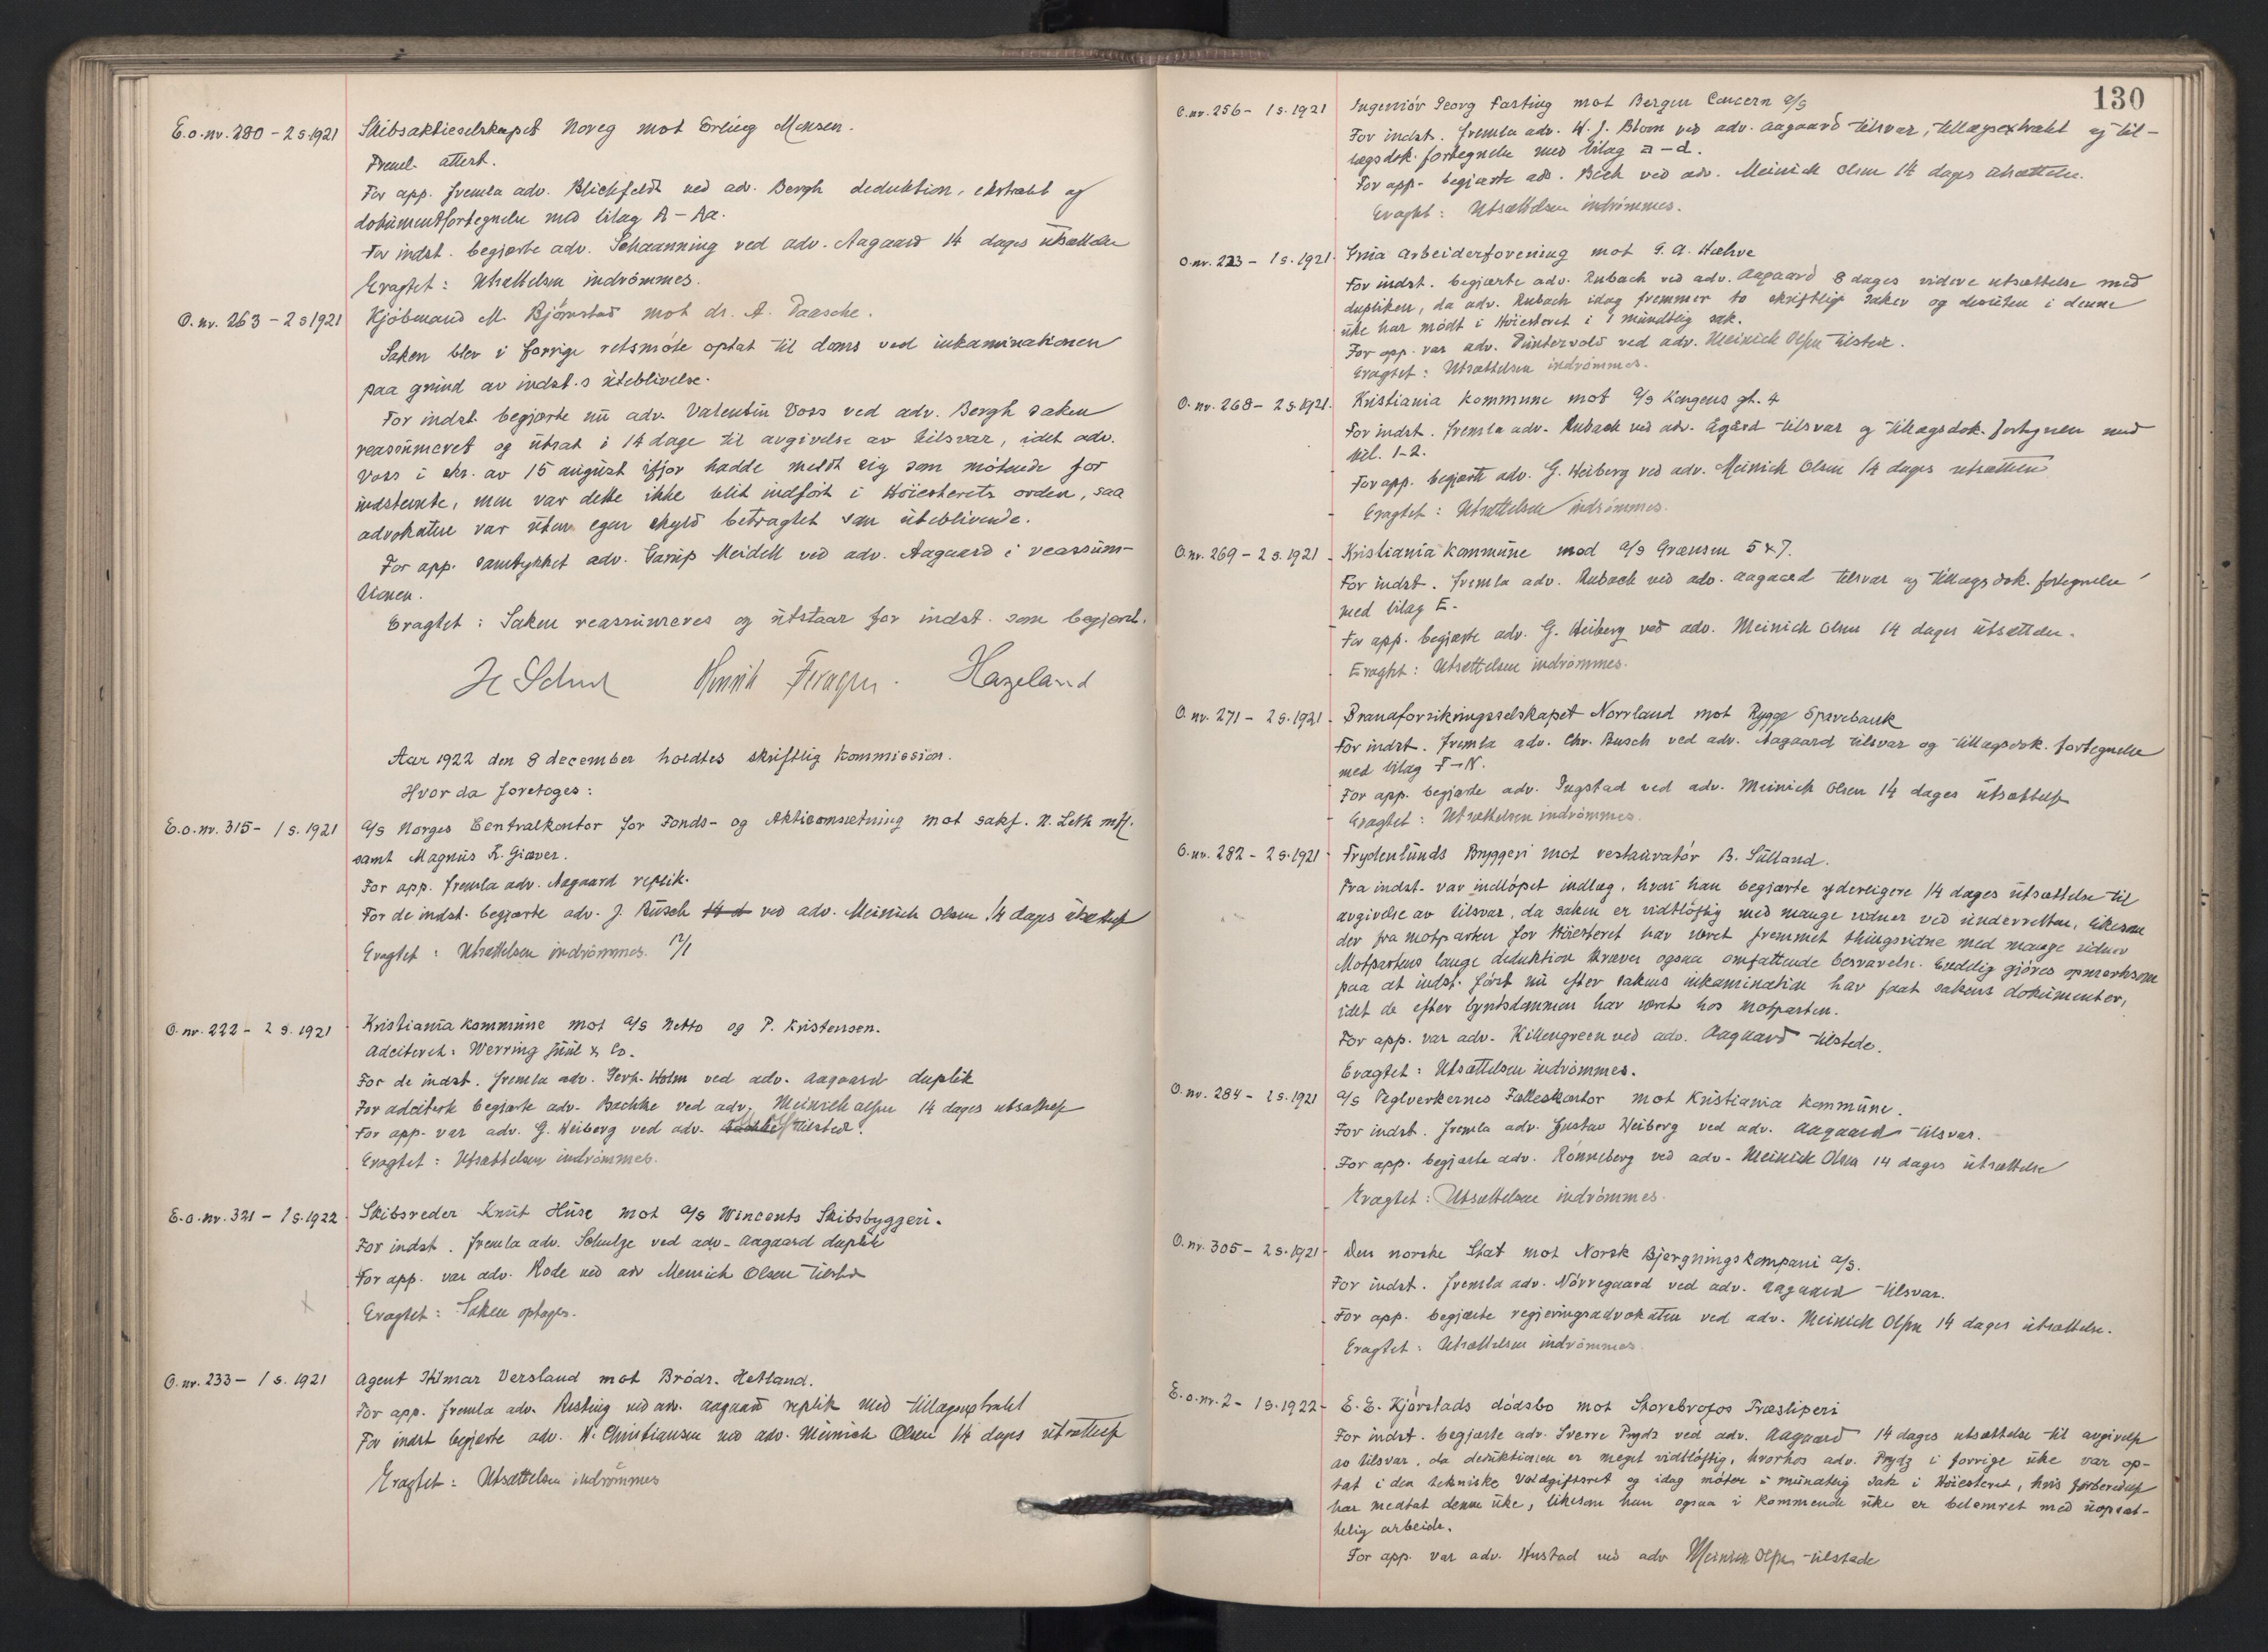 E.o.nr. 280 - 2 s. 1921 Skibsaktieselskapet Noreg mot Erling Monsen.
Freml. attest.
For app. fremla adv. Blichfeldt ved adv. Bergh deduktion, ekstrakt og
dokumentfortegnelse med bilag A - Aa.
For indst. begjærte adv. Schaanning ved adv. Aagaard 14 dages utsættelse
Eragtet: Utsættelsen indrömmes.
O. nr. 263 - 2 s 1921 Kjöbmand M. Bjönstad mot dr. A. Paasche.
Saken blev i forrige retsmöte optat til doms ved inkaminationen
paa grund av indst.s uteblivelse.
For indst. begjærte nu adv. Valentin Voss ved adv. Bergh saken
reassumeret og utsat i 14 dage til avgivelse av tilsvar, idet adv.
Voss i skr. av 15 august ifjor hadde meldt sig som mötende for
indstevnte, men var dette ikke blit indfört i Höiesterets orden, saa
advokaten var uten egen skyld betragtet som uteblivende.
For app. samtykket adv. Garup Meidell ved adv. Aagaard i reassum-
tionen.
Eragtet: Saken reassumeres og utstaar for indst. som begjært.
Hazeland
Aar 1922 den 8 december holdtes skriftlig kommission.
Hvor da foretoges:
E.o.nr. 315 - 1 s. 1921 a/s Norges Centralkontor for Fonds- og Aktieomsætning mot sakf. N. Leth mfl.
samt Magnus K. Giæver.
For app. fremla adv. Aagaard replik.
For de indst. begjærte adv. J. Busch 14 d ved adv. Meinich Olsen 14 dages utsættelse
Eragtet: Utsættelsen indrömmes. 12/1
O. nr. 222 - 2 s. 1921 Kristiania kommune mot a/s Netto og P. Kristensen.
Adciteret: Werring Juul & Co.
For de indst. fremla adv. Gerh. Holm ved adv. Aagaard duplik
For adciterte begjærte adv. Bachke ved adv. Meinich Olsen 14 dages utsættelse
For app. var adv. G. Heiberg ved adv. tilstede.
Eragtet: Utsættelsen indrömmes.
E.o.nr. 321 - 1 s. 1922 Skibsreder Knut Huse mot a/s Wincents Skibsbyggeri.
For indst. fremla adv. Schulze ved adv. Aagaard duplik
For app. var adv. Rode ved adv Meinich Olsen tilstede
Eragtet: Saken optages.
O. nr. 233 - 1 s. 1921 Agent Hilmar Versland mot Brödr. Hetland.
For app. fremla adv. Risting ved adv. Aagaard replik med tillægsextrakt
For indst begjærte adv. W. Christiansen ved adv. Meinich Olsen 14 dages utsættelse
Eragtet: Utsættelsen indrömmes
130
O. nr. 256 - 1 s. 1921 Ingeniör Georg Fasting mot Bergen Concern a/s
For indst. fremla adv. H. J. Blom ved adv. Aagaard tilsvar, tillægsextrakt og til-
lægsdok. fortegnelse med bilag a - d.
For app. begjærte adv. Bech ved adv. Meinich Olsen 14 dages utsættelse.
Eragtet: Utsættelsen indrömmes.
O. nr. 223 - 1 s. 1921. arbeiderforening mot G. A.
For indst. begjærte adv. Rubach ved adv. Aagaard 8 dages videre utsættelse med
dupliken, da adv. Rubach idag fremmer to skriftlige saker og desuten i denne
uke har mödt i Höiesteret i 1 mundtlig sak.
For app. var adv. Püntervold ved adv. Meinich Olsen tilstede.
Eragtet: Utsættelsen indrömmes.
O. nr. 268 - 2 s. 1921. Kristiania kommune mot a/s Kongens gt. 4
For indst. fremla adv. Rubach ved adv. Ågård tilsvar og tillægsdok. fortegnelse med
bil. 1-2.
For app. begjærte adv. G. Heiberg ved adv. Meinich Olsen 14 dages utsættelse
Eragtet: Utsættelsen indrömmes.
O. nr. 269 - 2 s. 1921 - Kristiania kommune mod a/s Grænsen 5 & 7.
For indst. fremla adv. Rubach ved adv. Aagaard tilsvar og tillægsdok. fortegnelse
med bilag E.
For app. begjærte adv. G. Heiberg ved adv. Meinich Olsen 14 dages utsættelse.
Eragtet: Utsættelsen indrömmes.
O. nr. 271 - 2 s. 1921 - Brandforsikringsselskapet Norrland mot Rygge Sparebank
For indst. fremla adv. Chr. Busch ved adv. Aagaard tilsvar og tillægsdok. fortegnelse
med bilag F - N.
For app. begjærte adv. Ingstad ved adv. Meinich Olsen 14 dages utsættelse
Eragtet: Utsættelsen indrömmes.
O. nr. 282 - 2 s. 1921 - Frydenlunds Bryggeri mot restauratör B. Sülland.
Fra indst. var indlöpet indlæg, hvori han begjærte yderligere 14 dages utsættelse til
avgivelse av tilsvar, da saken er vidtlöftig med mange vidner ved underretten, likesom
der fra motparten for Höiesteret har været fremmet thingsvidne med mange vidner
Motpartens lange deduktion kræver ogsaa omfattende besvarelse. Endelig gjöres opmerksom
paa at indst. först nu efter sakens inkamination har faat sakens dokumenter,
idet de efter byretsdommen har været hos motparten.
For app. var adv. Killengreen ved adv. Aagaard tilstede.
Eragtet: Utsættelsen indrömmes.
O. nr. 284 - 2 s. 1921 a/s Teglverkernes Fælleskontor mot Kristiania kommune.
For indst. fremla adv. Gustav Heiberg ved adv. Aagaard tilsvar.
For app. begjærte adv. Rönneberg ved adv. Meinich Olsen 14 dages utsættelse
Eragtet: Utsættelsen indrömmes.
O. nr. 305 - 2 s. 1921 - Den norske Stat mot Norsk Bjergningskompani a/s.
For indst. fremla adv. Nörregaard ved adv. Aagaard tilsvar.
For app. begjærte regjeringsadvokaten ved adv. Meinich Olsen 14 dages utsættelse.
Eragtet: Utsættelsen indrömmes.
E.o.nr. 2 - 1 s. 1922 - E. E. Kjörstads dödsbo mot Storebrofos Træsliperi
For indst. begjærte adv. Sverre Prydz ved adv. Aagaard 14 dages utsættelse til avgivelse
av tilsvar, da deduktionen er meget vidtlöftig, hvorhos adv. Prydz i forrige uke var op-
tat i den tekniske Voldgiftsret og idag möter i mundtlig sak i Höiesteret, hvis forberedelse
har medtat denne uke, likesom han ogsaa i kommende uke er belemret med uopsæt-
telig arbeide.
For app. var adv. Hustad ved adv Meinich Olsen tilstede